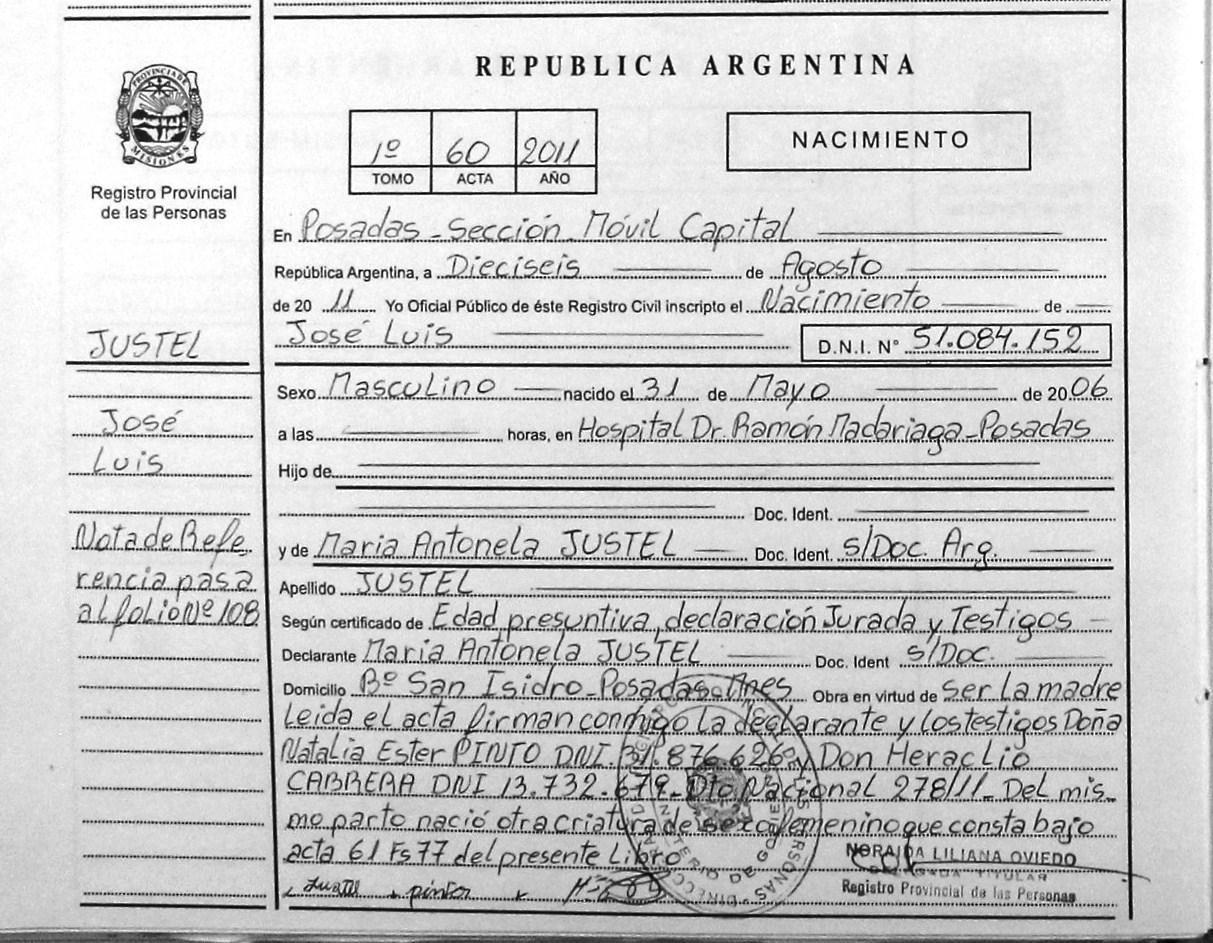 REPUBLICA ARGENTINA
PROVINCIA DE MISIONES
Registro Provincial
de las Personas
1º 60 2011
TOMO ACTA AÑO
NACIMIENTO
En Posadas - Sección Móvil Capital
República Argentina, a Dieciseis de Agosto
de 20 11 Yo Oficial Público de éste Registro Civil inscripto el Nacimiento de
José Luis D.N.I. N° 51.084.152
JUSTEL
Sexo Masculino nacido el 31 de Mayo de 20 06
José
a las horas, en Hospital Dr. Ramón Madariaga - Posadas
Luis
Hijo de
Doc. Ident.
Nota de Refe
y de Maria Antonela JUSTEL Doc. Ident. s/Doc. Arg.
rencia pasa
Apellido JUSTEL
al folio Nº 108
Según certificado de Edad presuntiva, declaración Jurada y Testigos
Declarante Maria Antonela JUSTEL Doc. Ident s/Doc.
Domicilio Bº San Isidro - Posadas - Mnes Obra en virtud de ser la madre
Leida el acta firman conmigo la declarante y los testigos Doña
Natalia Ester PINTO DNI. 31.876.626 y Don Heraclio
CABRERA DNI 13.732.679 - Dto Nacional 278/11 - Del mis-
mo parto nació otra criatura de sexo femenino que consta bajo
acta 61 Fs 77 del presente Libro
NORAIDA LILIANA OVIEDO
DELEGADA TITULAR
Registro Provincial de las Personas
Justel